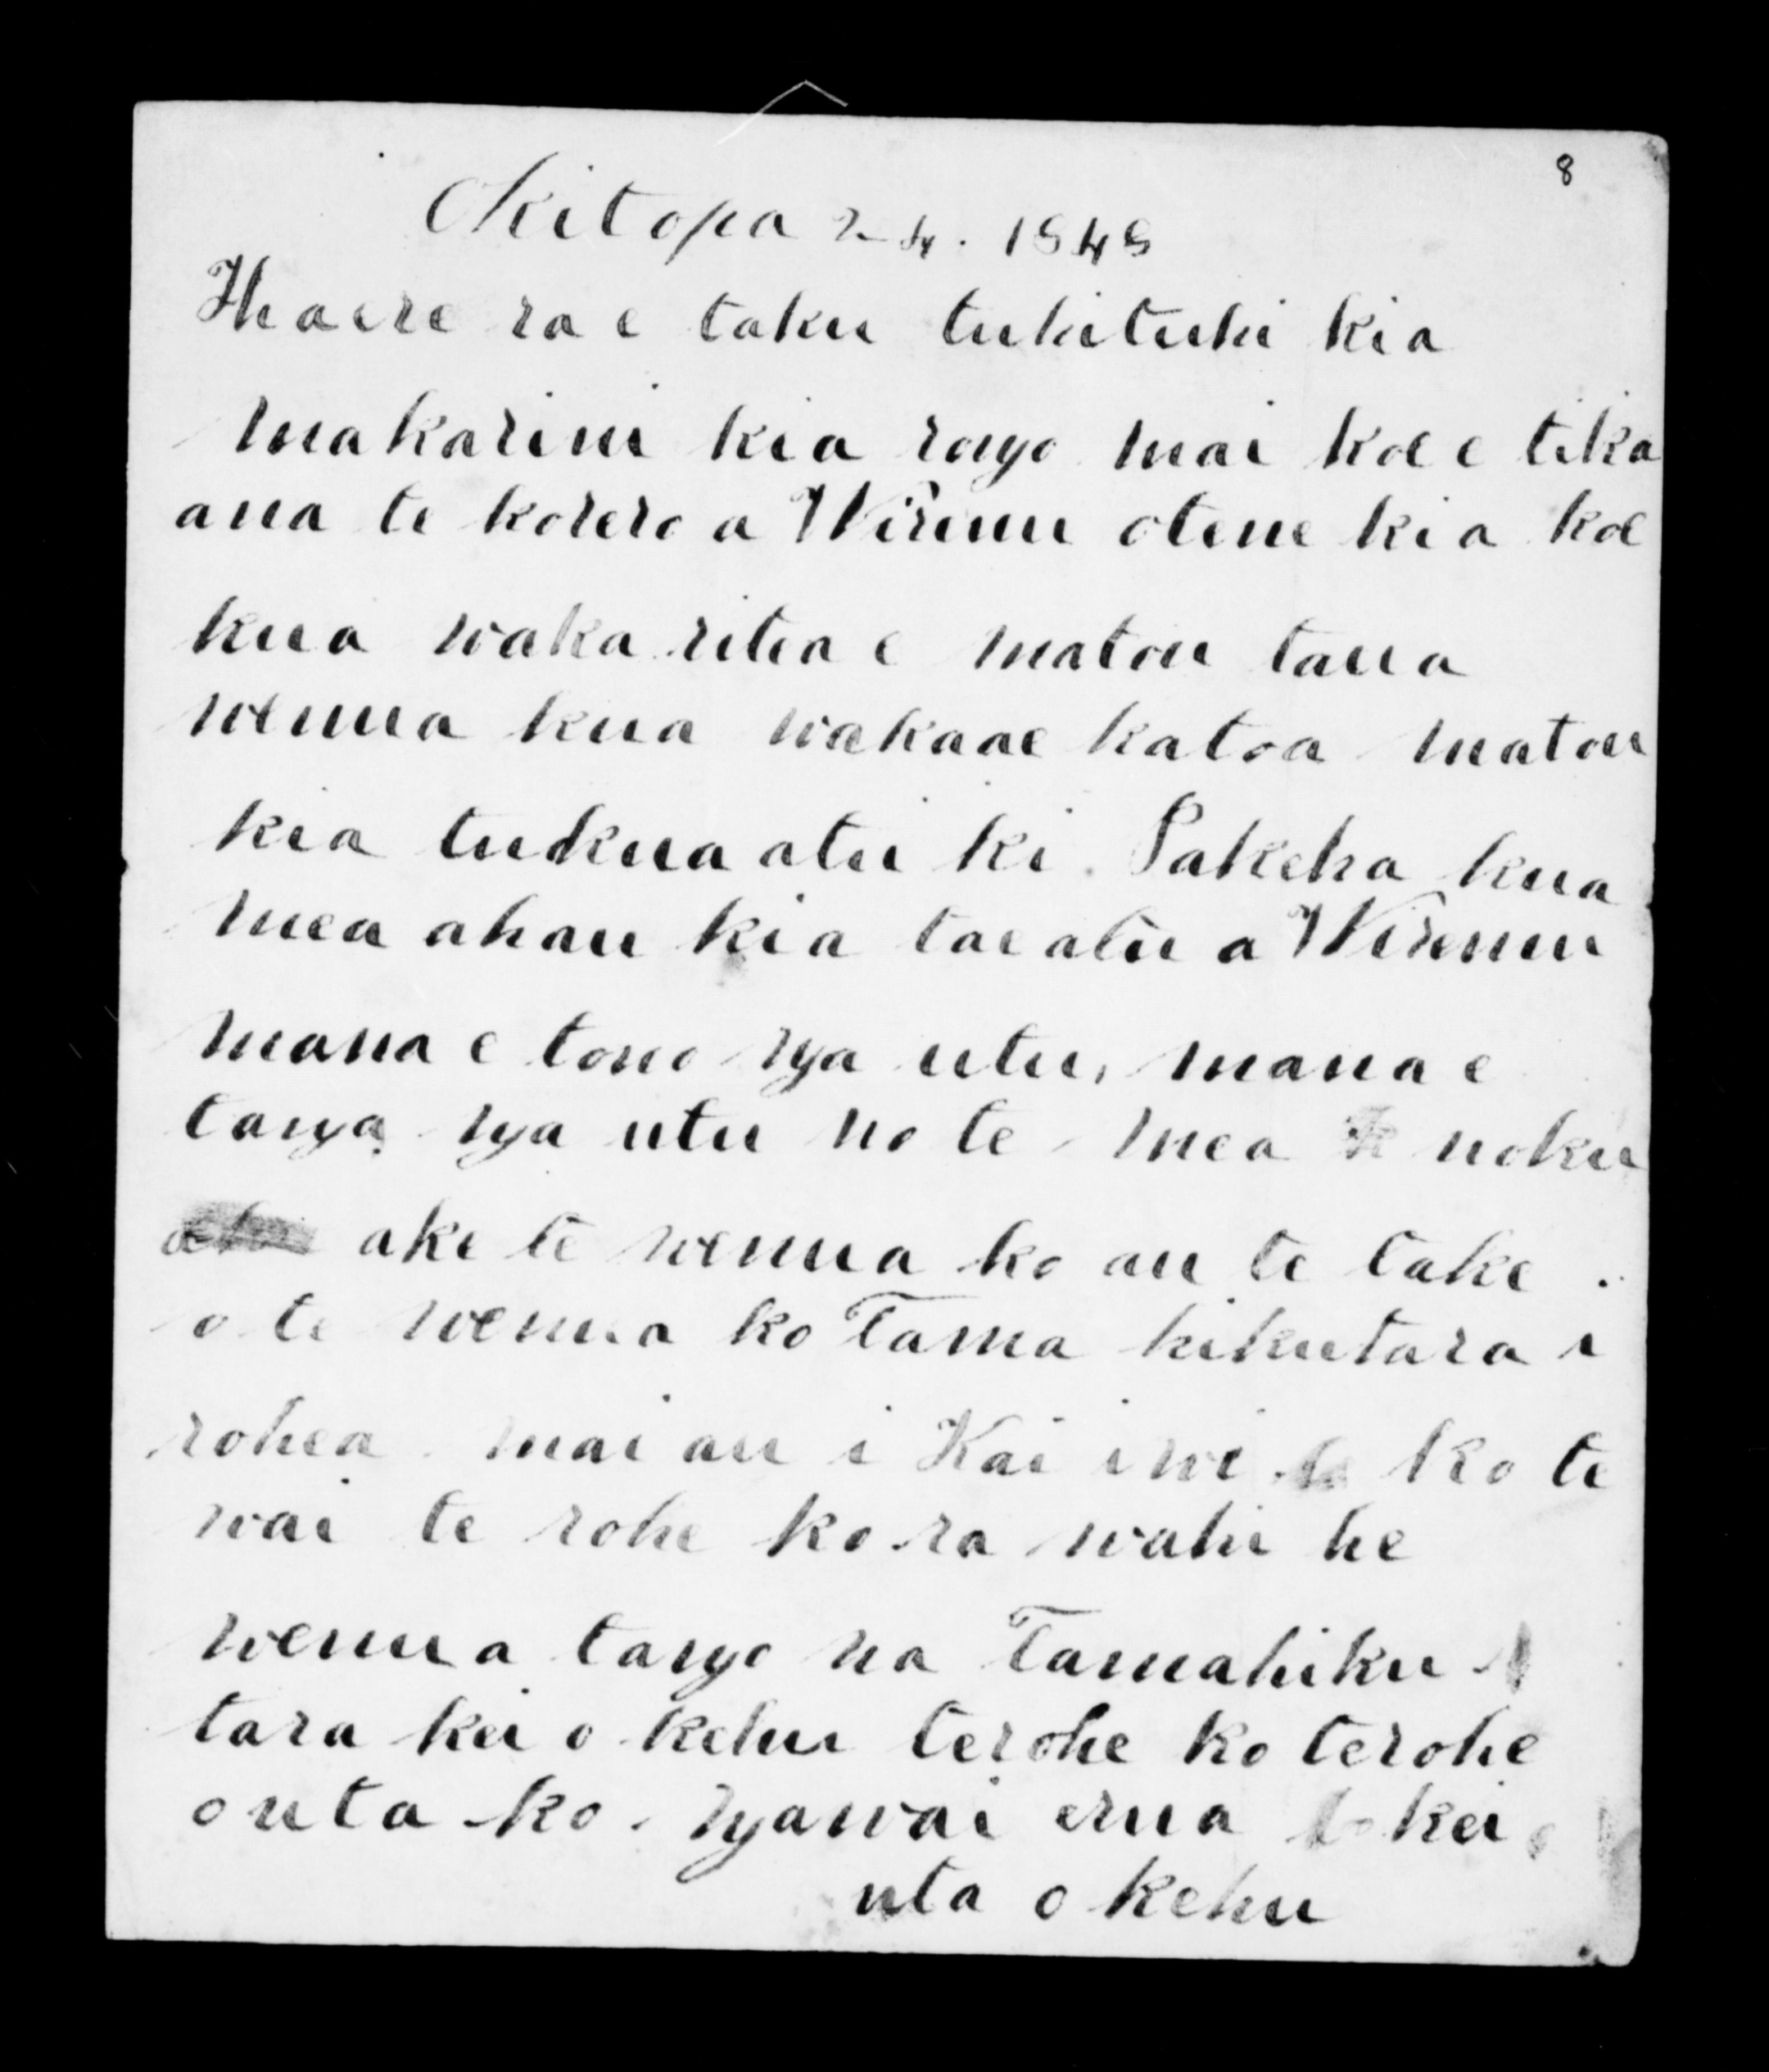 8
Okitopa 24. 1848
Haere ra e taku tuhituhi kia
makarini kia rongo mai koe e tika
ana te korero a Wiremu otene kia koe
kua waka ritea e matou taua
wenua kua wakaae katoa matou
kia tukua atu ki Pakeha kua
mea ahau kia tae atu a Wiremu
mana e tono nga utu, mana e
tango nga utu no te mea noku
ake te wenua ko au te take
o te wenua ko Tama hikutara i
rohea mai au i Kai iwi ko te
wai te rohe ko ra wahi he
wenua tango na Tamahiku
tara kei o kehu terohe ko terohe
o uta ko ngawai erua kei
uta o kehu